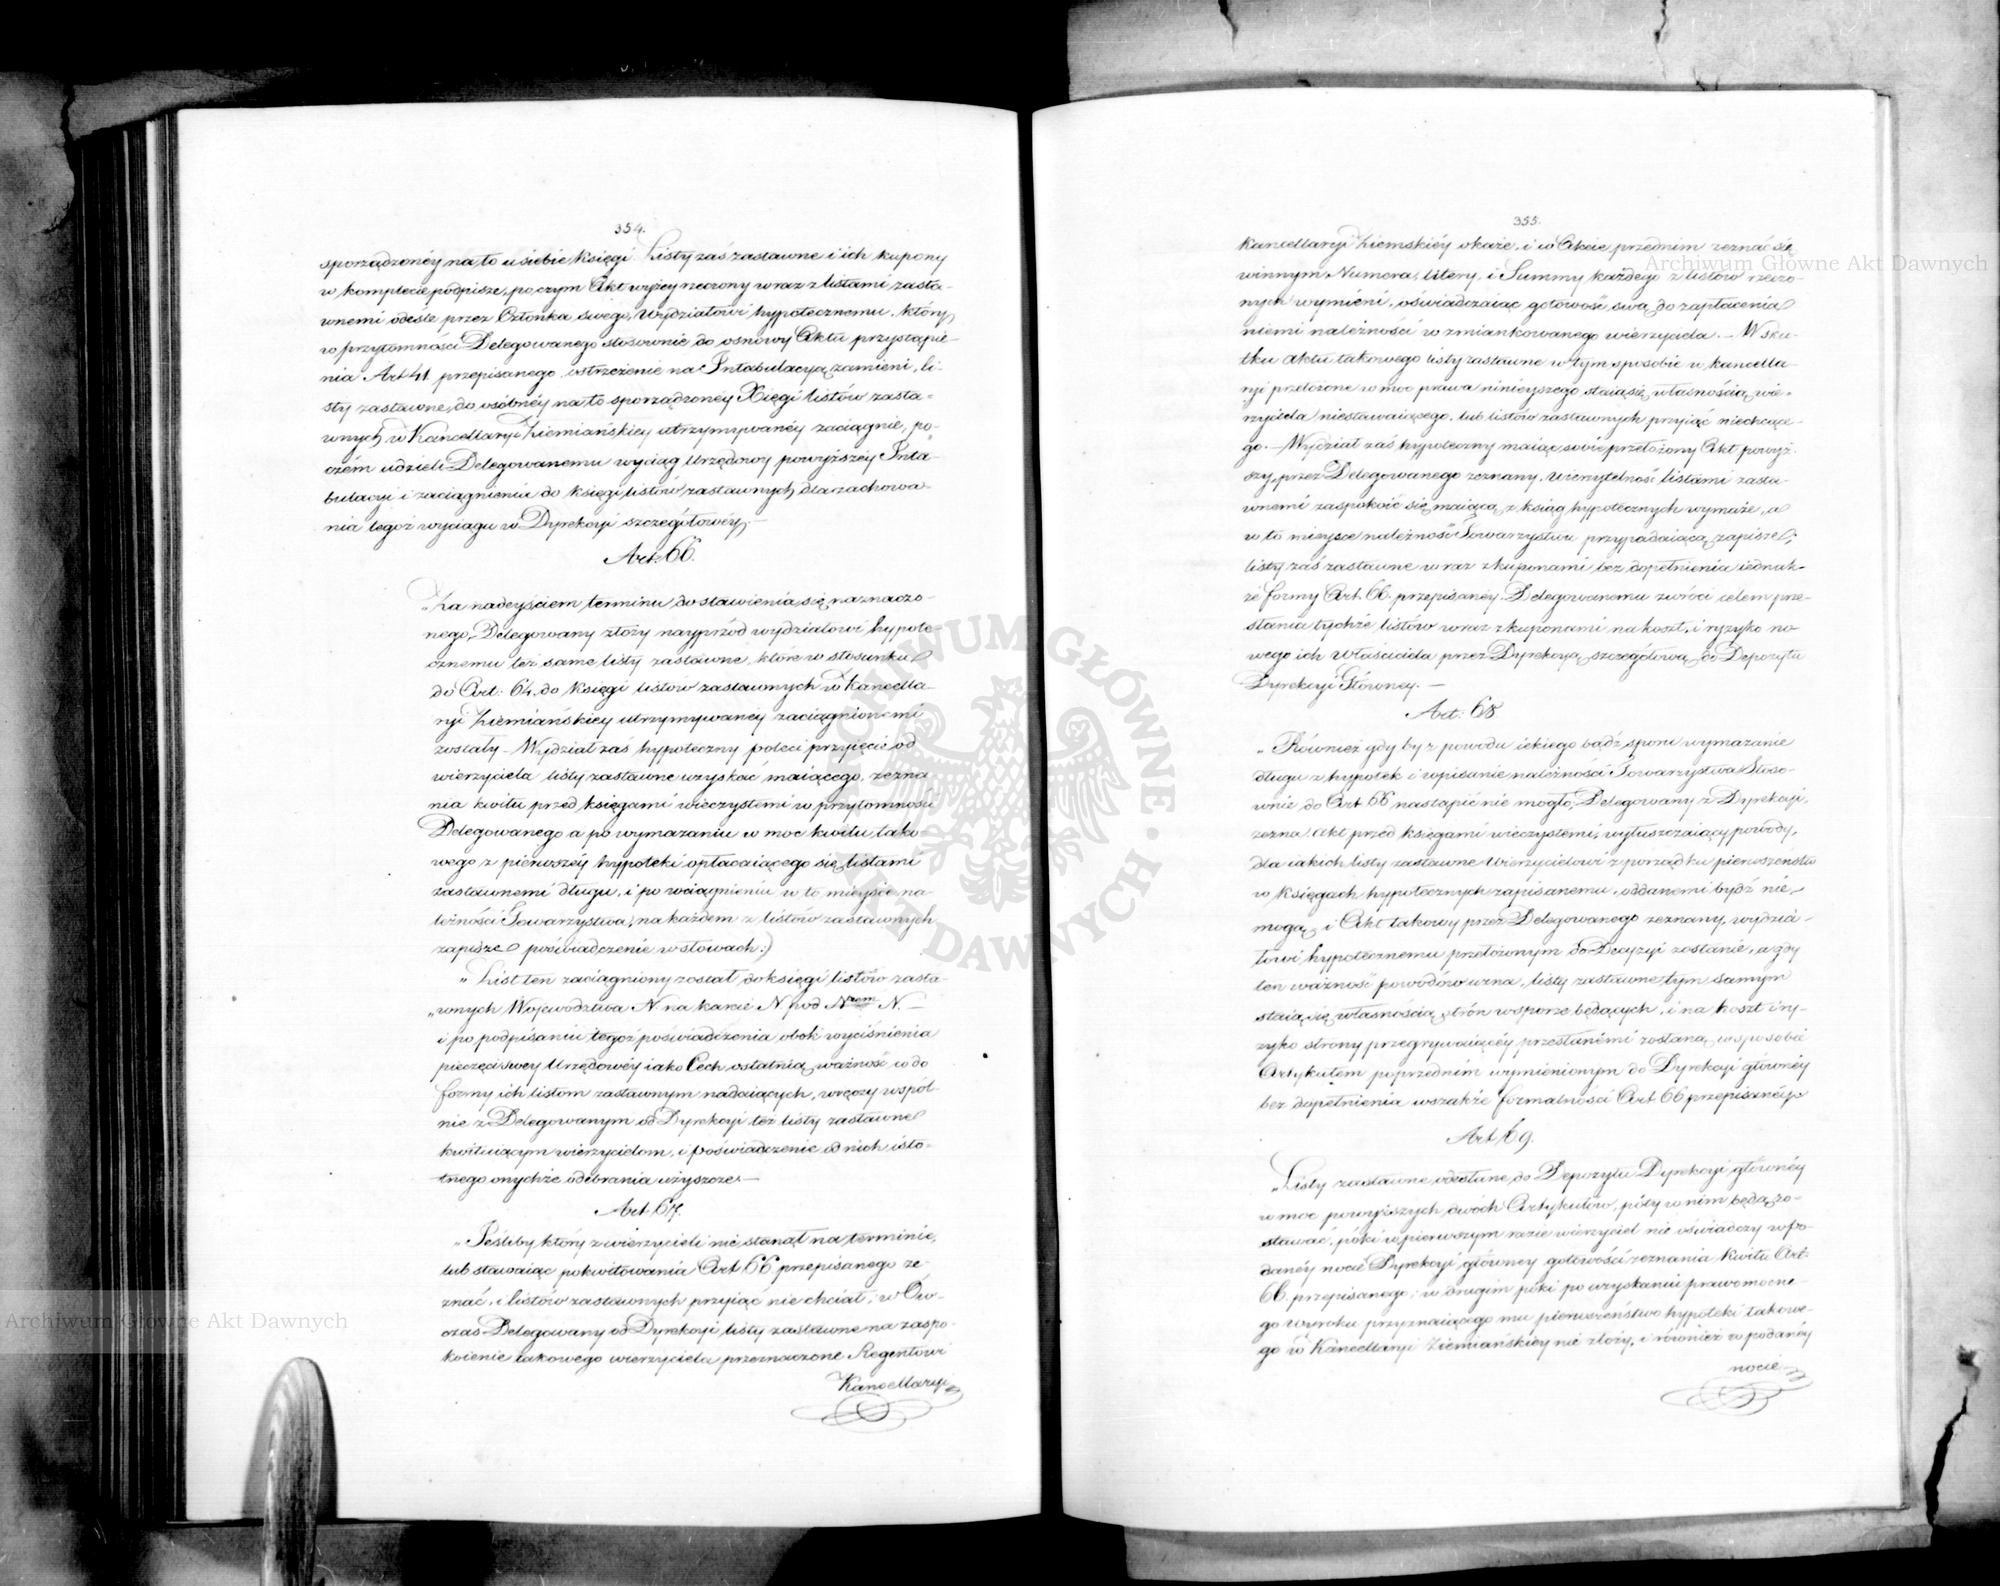 354.
sporządzonéy na to u siebie księgi. Listy zaś zastawne i ich kupony
w komplecie podpisze, po czym Akt wyżey rzeczony wraz z listami zasta-
wnemi odeśle przez Członka swego, Wydziałowi hypotecznemu, który
w przytomności Delegowanego stosownie do osnowy Aktu przystąpie-
nia Art 41 przepisanego ostrzeżenie na Intabulacyą zamieni, li-
sty zastawne, do osóbnéy na to sporządzoney Xięgi listów zasta-
wnych w Kancellaryi Ziemiańskiey utrzymywanéy zaciągnie, po-
czém udzieli Delegowanemu wyciąg Urzędowy powyższey Inta-
bulacyi i zaciągnieniu do księgi listów zastawnych dla zachowa-
nia tegoż wyciągu w Dyrekcyi szczegółowéy. —
Art: 66.
„Za nadeyściem terminu do stawienia się naznaczo-
nego, Delegowany złoży nayprzód wydziałowi hypote-
cznemu też same listy zastawne, które w stosunku
do Art: 64. do księgi listów zastawnych w Kancella-
ryi Ziemiańskiey utrzymywanéy zaciągnionemi
zostały. Wydział zaś hypoteczny poleci przyięcie od
wierzyciela listy zastawne uzyskać maiącego, zezna
nia kwitu przed księgami wieczystemi w przytomności
Delegowanego a po wymazaniu w moc kwitu tako-
wego z pierwszéy hypoteki opłacaiącego się listami
zastawnemi długu, i po wciągnieniu w to mieysce na-
leżności Towarzystwa, na każdem z listów zastawnych
zapisze poświadczenie w słowach:)
„List ten zaciągniony został do księgi listów zasta-
„wnych Województwa N na karcie N pod Nrem N. —
i po podpisaniu tegoż poświadczenia obok wyciśnienia
pieczęci swey Urzędowéy iako Cech ostatnią ważność co do
formy ich listom zastawnym nadaiących, wręczy wspól-
nie z Delegowanym od Dyrekcyi też listy zastawne
kwituiącym wierzycielom, i poświadczenie od nich isto-
tnego onychże odebrania uzyszcze. —
Art 67.
„Jeśliby który z wierzycieli nie stanął na terminie,
lub stawaiąc pokwitowania Art 66 przepisanego ze-
znać, i listów zastawnych przyiąć nie chciał, w Ów-
czas Delegowany od Dyrekcyi listy zastawne na zaspo-
koienie takowego wierzyciela przeznaczone Regentowi
Kancellaryi
355.
Kancellaryi Ziemskiéy okaże, i w Akcie przednim zeznać się
winnym Numera, litery, i Summy każdego z listów rzeczo-
nych wymieni, oświadczaiąc gotowość swą do zapłacenia
niemi należności wzmiankowanego wierzyciela. — W sku-
tku aktu takowego listy zastawne w tym sposobie w kancella-
ryi przełożone w moc prawa ninieyszego staią się własnością wie-
rzyciela niestawaiącego, lub listów zastawnych przyiąć niechcące-
go. — Wydział zaś hypoteczny maiąc sobie przełożony Akt powyż-
szy, przez Delegowanego zeznany, wierzytelność listami zasta-
wnemi zaspokoić się maiącą z ksiąg hypotecznych wymaże, a
w to mieysce należność Towarzystwu przypadaiącą zapisze;
listy zaś zastawne wraz z kuponami bez dopełnienia iednak-
że formy Art. 66. przepisanéy Delegowanemu zwróci celem prze-
słania tychże listów wraz z kuponami na koszt, i ryzyko no
wego ich Właściciela przez Dyrekcyą szczegółową do Depozytu
Dyrekcyi Głównéy. —
Art: 68
„Również gdy by z powodu iakiego bądź sporu wymazanie
długu z hypotek i wpisanie należności Towarzystwa stoso-
wnie do Art 66 nastąpić nie mogło, Delegowany z Dyrekcyi,
zezna Akt przed księgami wieczystemi, wytłuszczaiący powody,
dla iakich listy zastawne wierzycielowi z porządku pierwszeństw
w księgach hypotecznych zapisanemu, oddanemi bydź nie
mogą, i Akt takowy przez Delegowanego zeznany, wydzia-
łowi hypotecznemu przełożonym do Decyzyi zostanie, a gdy
ten ważność powodów uzna, listy zastawne tym samym
staią się własnością strón w sporze będących, i na koszt i ry-
zyko strony przegrywaiącéy przesłanémi zostaną w sposobie
Artykułem poprzednim wymienionym do Dyrekcyi główney
bez dopełnienia wszakże formalności Art 66 przepisanéy.
Art 69.
„Listy zastawne odesłane do Depozytu Dyrekcyi głównéy
w moc powyższych dwóch Artykułów, póty w nim będą zo-
stawać, póki w pierwszym razie wierzyciel nie oświadczy w po-
danéy nocie Dyrekcyi główney gotowości zeznania kwitu Art:
66 przepisanego; w drugim póki po uzyskaniu prawomocne-
go wyroku przyznaiącego mu pierwszeństwo hypoteki takowe-
go w Kancellaryi Ziemiańskiéy nie złoży, i również w podanéy
nocie
Archiwum Główne Akt Dawnych
Archiwum Główne Akt Dawnych
ARCHIWUM GŁÓWNE AKT DAWNYCH